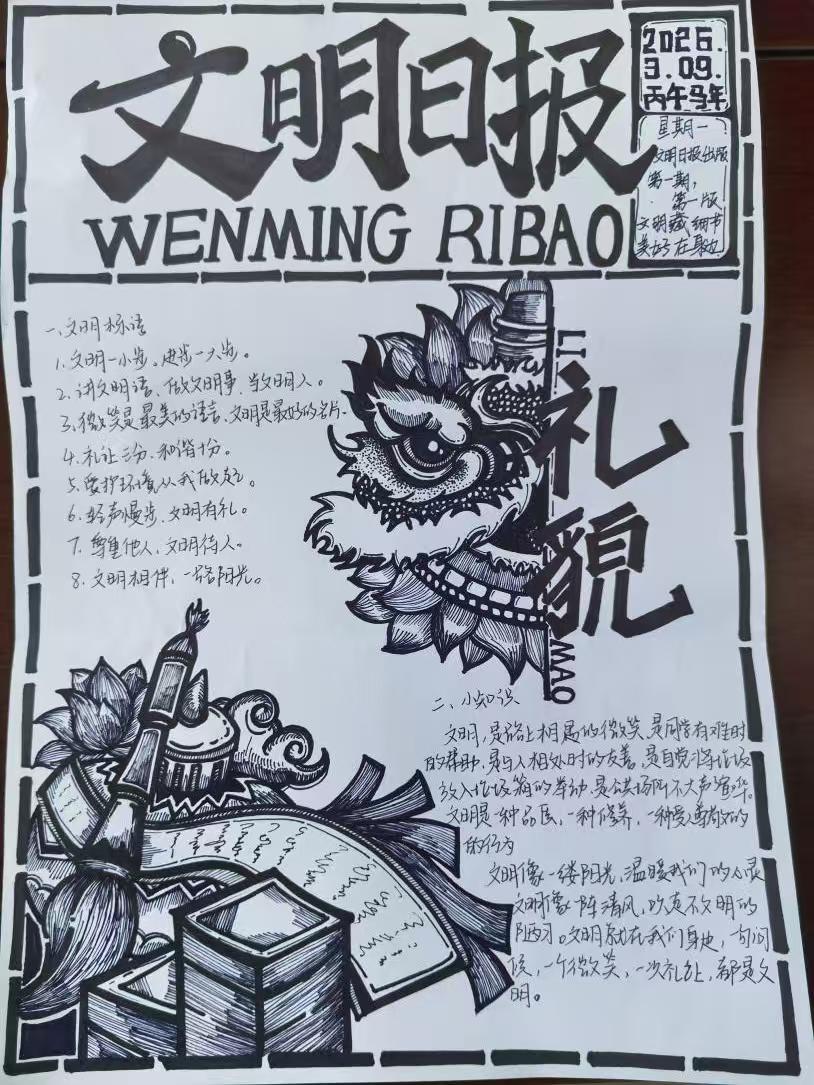 文明日报
WENMING RIBAO
2026.
3.09.
丙午马年
星期一
文明日报出版
第一期,
第一版
文明藏细节
美好在身边
一、文明标语
1、文明一小步。进步一大步。
2、讲文明语、做文明事、当文明人。
3、微笑是最美的语言、文明是最好的名片。
4、礼让三分、和谐十分。
5、爱护环境从我做起。
6、轻声慢步、文明有礼。
7、尊重他人、文明待人。
8、文明相伴、一路阳光。
LI
礼
貌
MAO
二、小知识
文明,是路上相遇的微笑、是同学有难时
的帮助、是与人相处时的友善、是自觉将垃圾
放入垃圾箱的举动、是公共场所不大声喧哗。
文明是一种品质,一种修养,一种受人尊敬的
的行为
文明像一缕阳光,温暖我们的心灵
文明像一阵清风,吹走不文明的
陋习。文明就在我们身边,一句问
候,一个微笑,一次礼让,都是文
明。